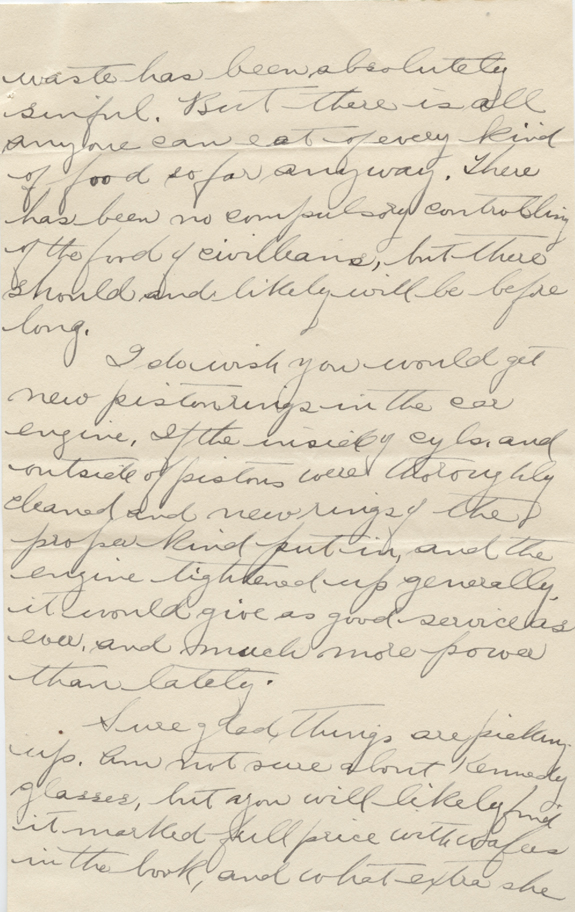 waste has been absolutely
sinful. But there is all
anyone can eat of every kind
of food so far anyway. There
has been no compulsory controlling
of the food of civilians, but there
should and likely will be before
long.
I do wish you would get
new piston rings in the car
engine. If the inside of cyls. and
outside of pistons were thoroughly
cleaned and new rings of the
proper kind put in, and the
engine tightened up generally,
it would give as good service as
ever, and much more power
than lately.
Sure glad things are picking
up. Am not sure about Kennedy
glasses, but you will likely find
it marked full price with
in the book, and what extra she